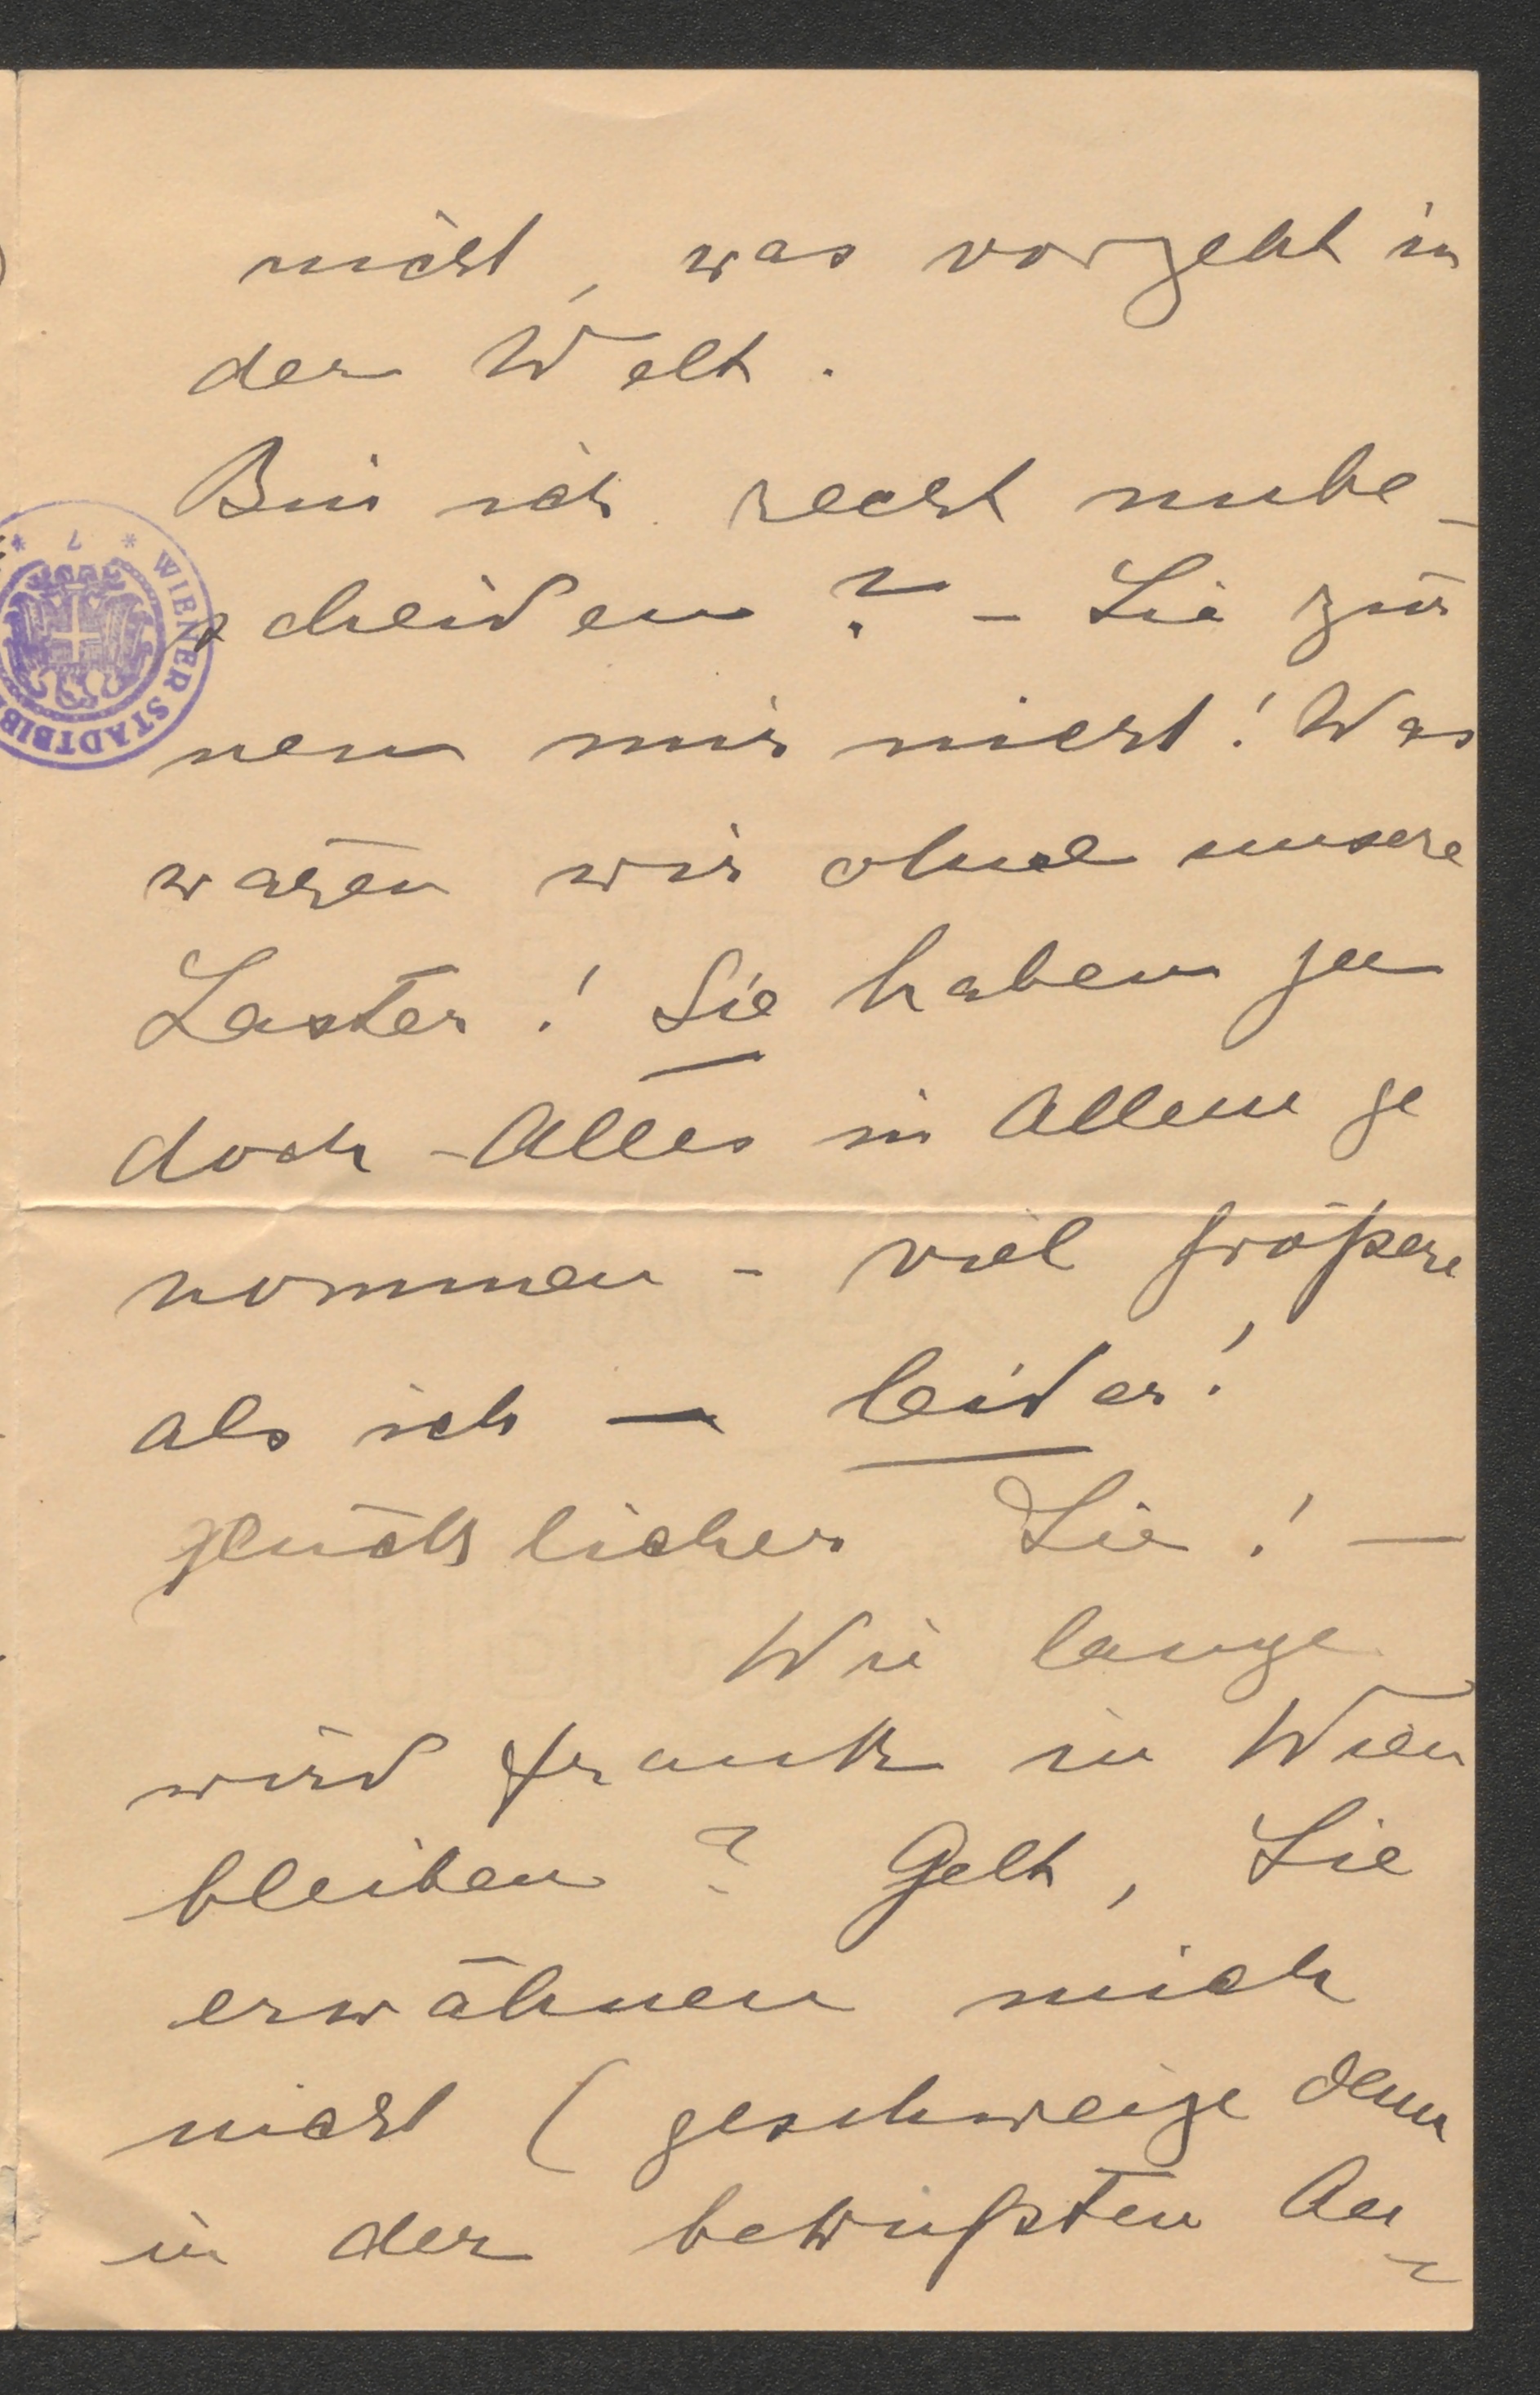 nicht, was vorgeht in
der Welt.
Bin ich recht unbe-
scheiden? - Sie zür
nen mir nicht! Was
wären wir ohne unsere
Laster! Sie haben ja
doch - Alles in Allem ge
nommen - viel größere
als ich — leider!
Glücklicher Sie! —
Wie lange
wird Frank in Wien
bleiben? Gelt, Sie
erwähnen mich
nicht (geschweige denn
in der bewußten An-
WIENER STADTBIB
* 7 *